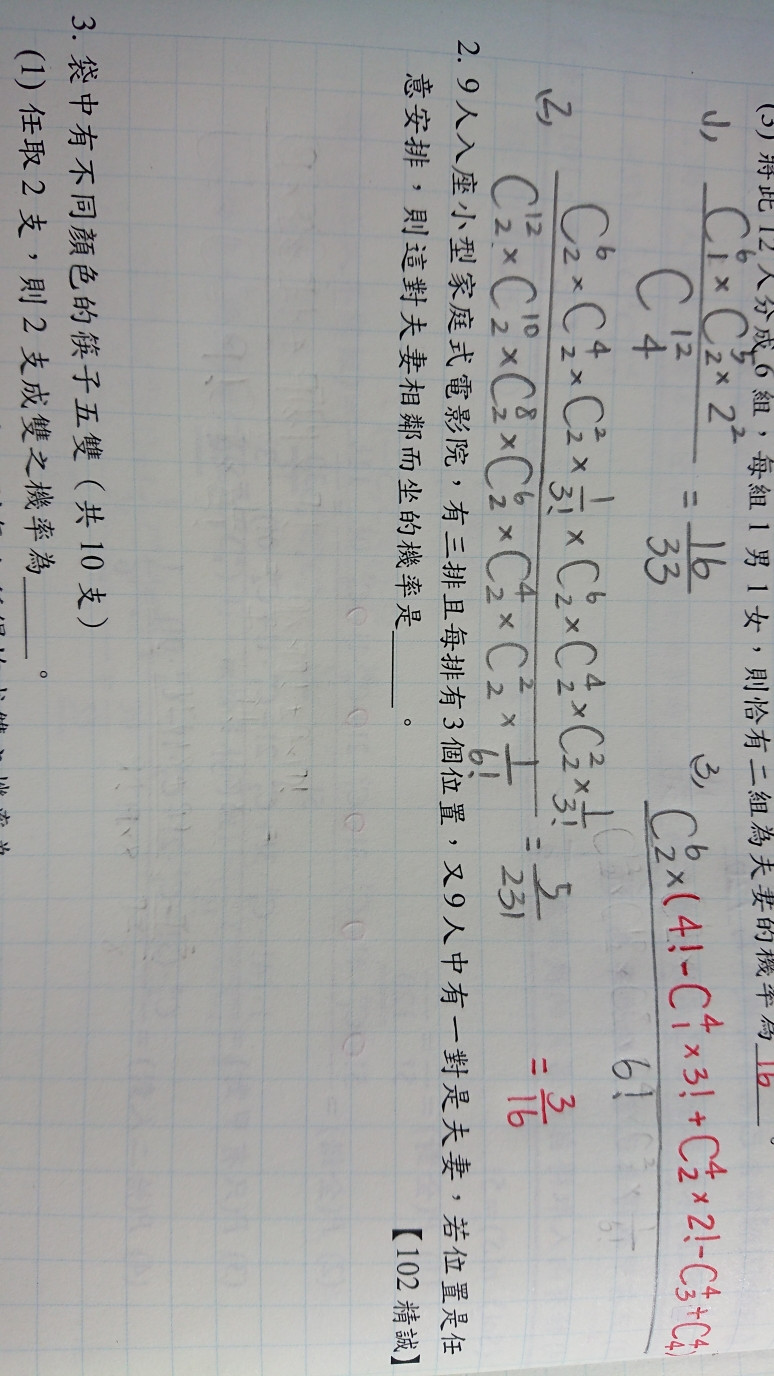 (3) 將此 12 人分成 6 組，每組 1 男 1 女，則恰有二組為夫妻的機率為 16 。
1, C⁶₁ × C⁵₂ × 2² / C¹²₄ = 16/33
3, C⁶₂ × (4! - C⁴₁ × 3! + C⁴₂ × 2! - C⁴₃ + C⁴₄) / 6!
= 3/16
2, C⁶₂ × C⁴₂ × C²₂ × 1/3! × C⁶₂ × C⁴₂ × C²₂ × 1/3! / C¹²₂ × C¹⁰₂ × C⁸₂ × C⁶₂ × C⁴₂ × C²₂ × 1/6! = 5/231
2. 9 人入座小型家庭式電影院，有三排且每排有 3 個位置，又 9 人中有一對是夫妻，若位置是任
意安排，則這對夫妻相鄰而坐的機率是______。 【102 精誠】
3. 袋中有不同顏色的筷子五雙（共 10 支）
(1) 任取 2 支，則 2 支成雙之機率為______。